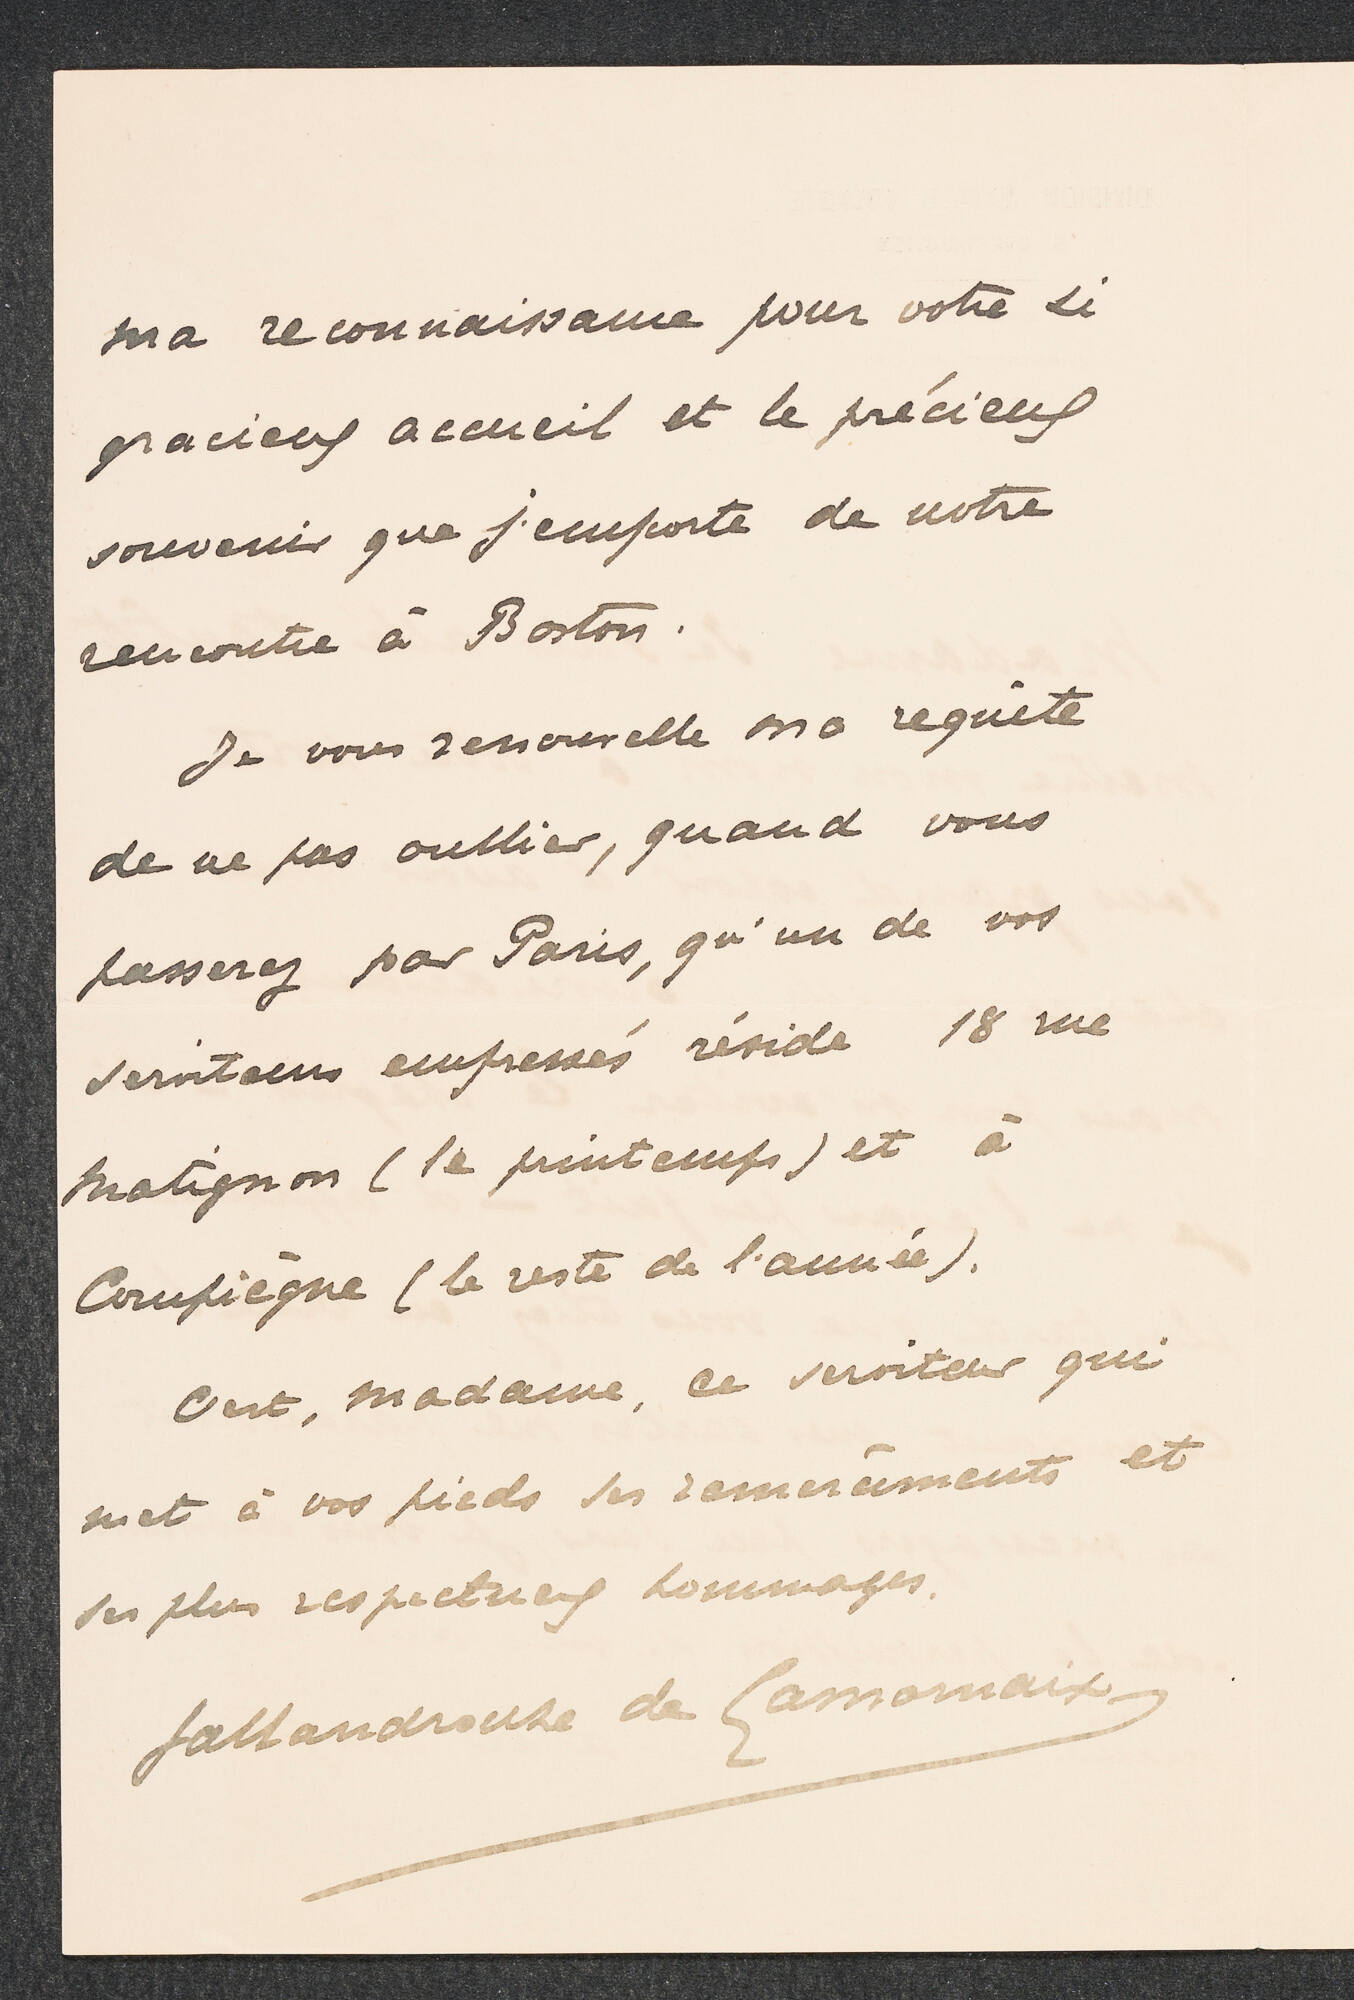 ma reconnaissance pour votre si
gracieux accueil et le précieux
souvenir que j'emporte de notre
rencontre à Boston.
Je vous renouvelle ma requête
de ne pas oublier, quand vous
passerez par Paris, qu'un de vos
serviteurs empressés réside 18 rue
Matignon (le printemps) et à
Compiègne (le reste de l'année).
C'est, Madame, ce serviteur qui
met à vos pieds ses remerciements et
ses plus respectueux hommages.
Sallandrouze de Lamornaix